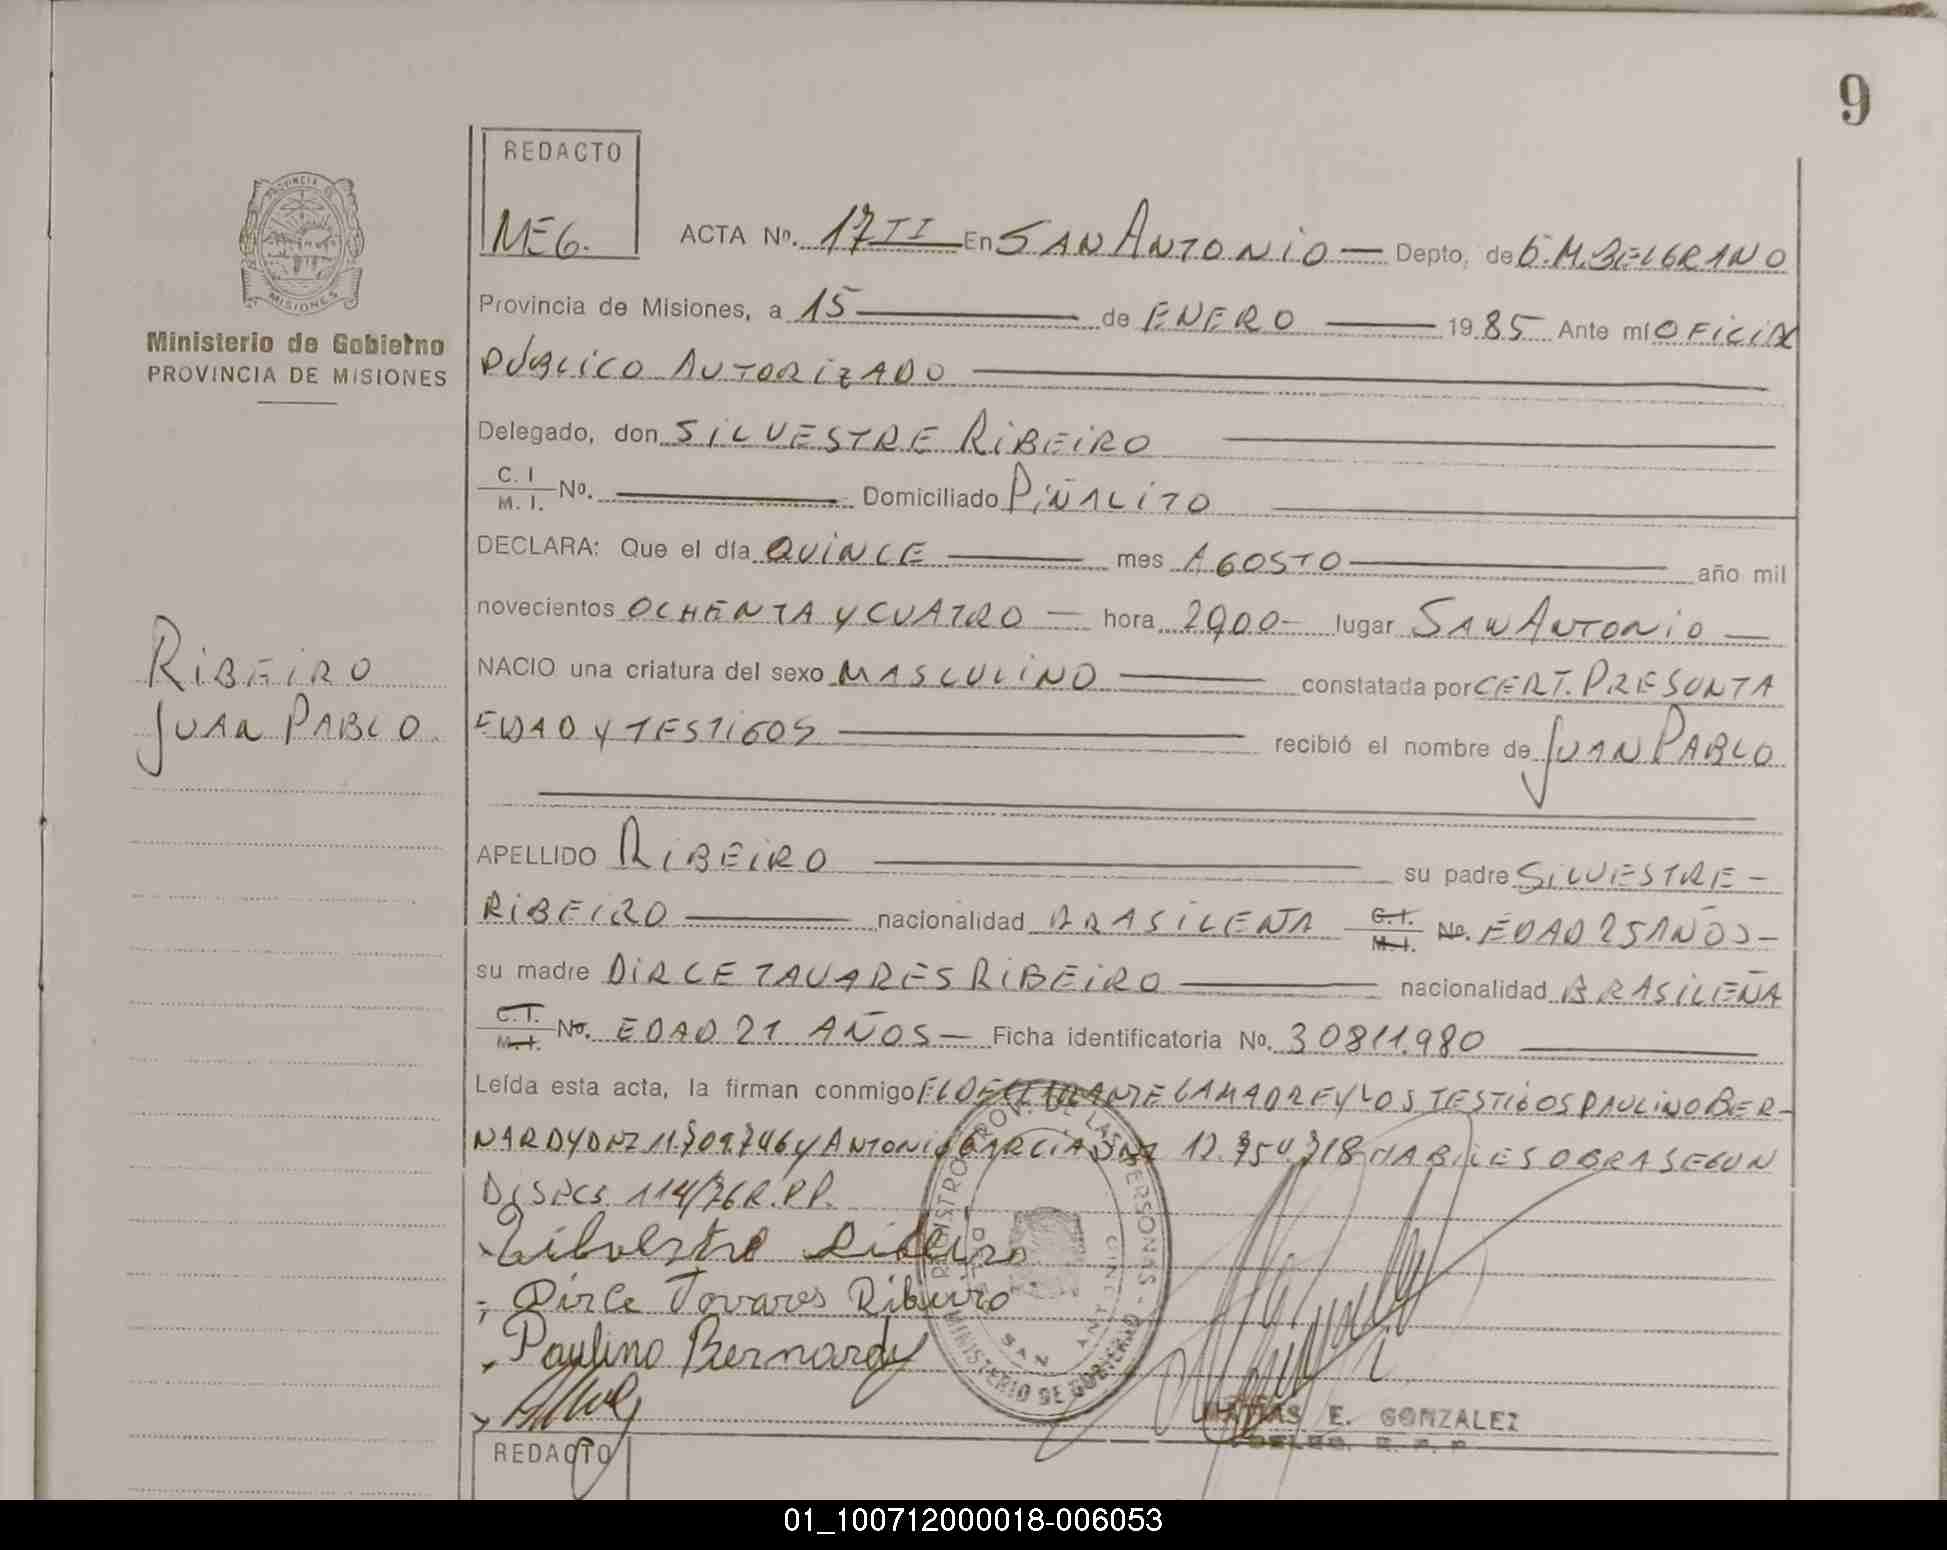 9
REDACTO
MEG.
ACTA Nº. 17 TI En SAN ANTONIO — Depto, de G.M.BELGRANO
Provincia de Misiones, a 15 de ENERO 1985 Ante mí OFICIAL
PÚBLICO AUTORIZADO
Ministerio de Gobierno
PROVINCIA DE MISIONES
Delegado, don SILVESTRE RIBEIRO
C. I
M. I. Nº. Domiciliado PIÑALITO
DECLARA: Que el día QUINCE mes AGOSTO año mil
novecientos OCHENTA Y CUATRO — hora 2900- lugar SAN ANTONIO —
RIBEIRO
JUAN PABLO.
NACIO una criatura del sexo MASCULINO constatada por CERT. PRESUNTA
EDAD Y TESTIGOS recibió el nombre de JUAN PABLO
APELLIDO RIBEIRO su padre SILVESTRE -
RIBEIRO nacionalidad BRASILEÑA C.I. M.I. Nº. EDAD 25 AÑOS -
su madre DIRCE TAVARES RIBEIRO nacionalidad BRASILEÑA
C.I. M.I. Nº. EDAD 21 AÑOS — Ficha identificatoria Nº. 30811.980
Leída esta acta, la firman conmigo EL DECLARANTE LA MADRE Y LOS TESTIGOS PAULINO BER-
NARDY DNI 11.709.746 Y ANTONIO GARCIA DNI 12.754.718 HABILES OBRA SEGUN
114/76 R.P.P.
Silvestre Ribeiro
Dirce Tavares Ribeiro
Paulino Bernardy
REGISTRO PROV. DE LAS PERSONAS - MINISTERIO DE GOBIERNO
MATIAS E. GONZALEZ
REDACTO
01_100712000018-006053